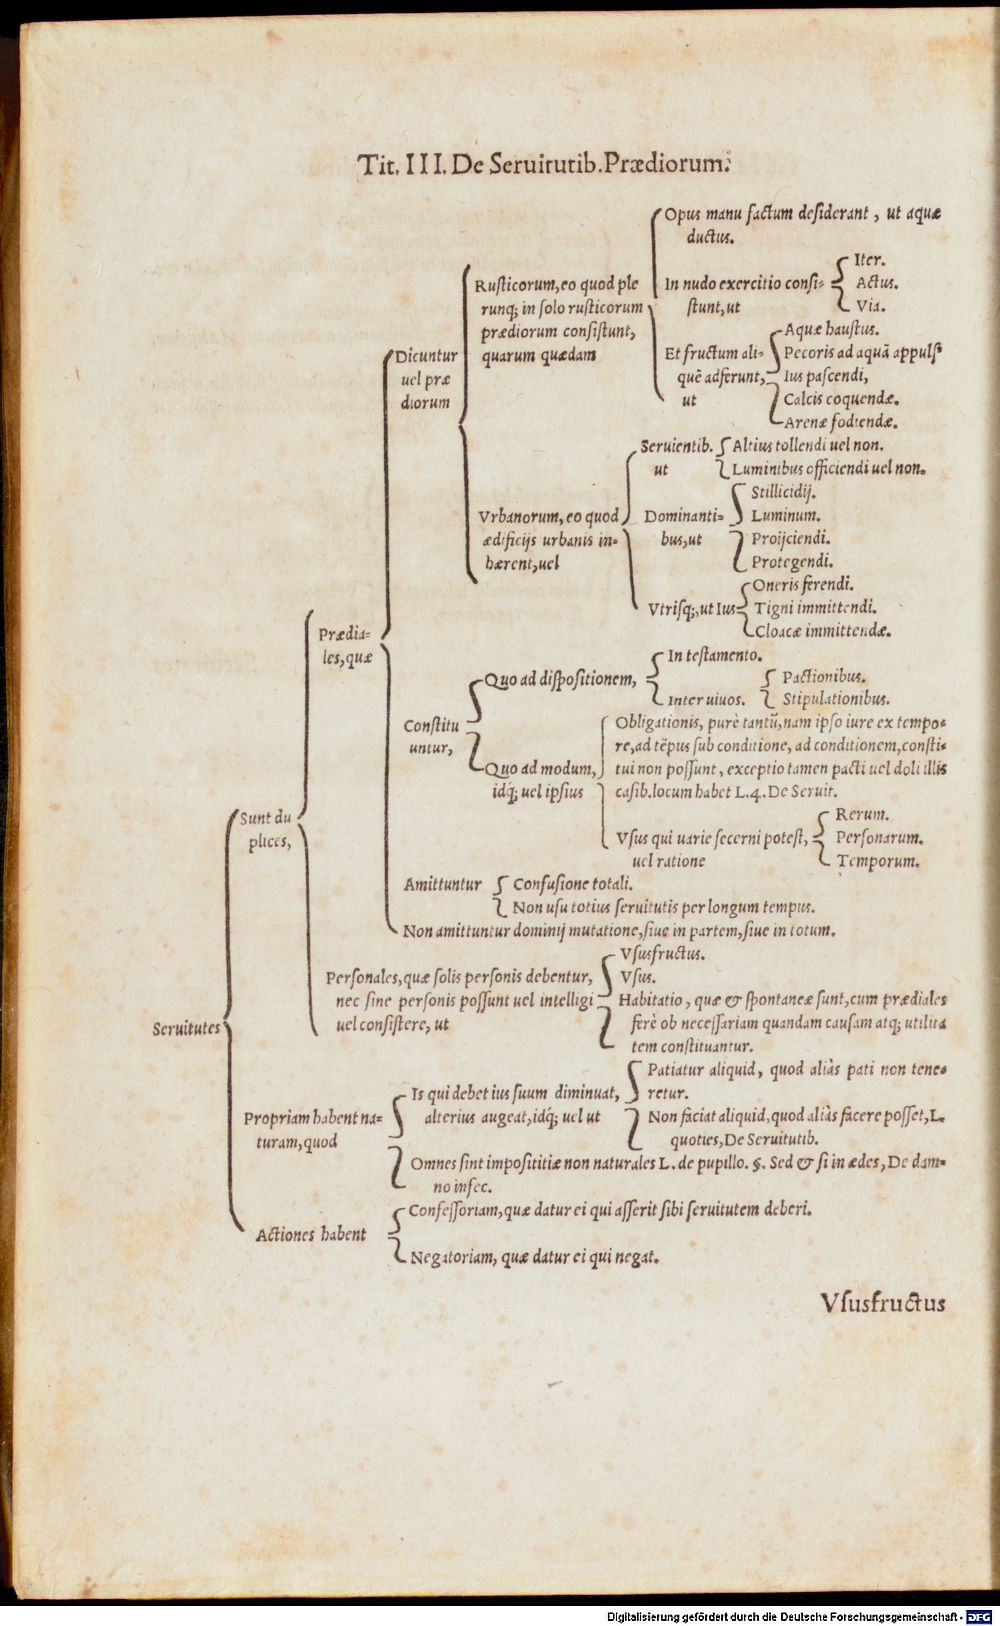 Tit. III. De Seruitutib. Prædiorum.
Opus manu factum desiderant, ut aquæ
ductus.
Rusticorum, eo quod ple
runq; in solo rusticorum
prædiorum consistunt,
quarum quædam
In nudo exercitio consi-
stunt, ut
Iter.
Actus.
Via.
Et fructum ali-
quē adferunt,
ut
Aquæ haustus.
Pecoris ad aquā appuls9
Ius pascendi,
Calcis coquendæ.
Arenæ fodiendæ.
Dicuntur
uel præ
diorum
Vrbanorum, eo quod
ædificijs urbanis in-
hærent, uel
Seruientib.
ut
Altius tollendi uel non.
Luminibus officiendi uel non.
Dominanti-
bus, ut
Stillicidij.
Luminum.
Proijciendi.
Protegendi.
Vtrisq;, ut Ius
Oneris ferendi.
Tigni immittendi.
Cloacæ immittendæ.
Prædia-
les, quæ
Constitu
untur,
Quo ad dispositionem,
In testamento.
Inter uiuos.
Pactionibus.
Stipulationibus.
Quo ad modum,
idq́; uel ipsius
Obligationis, purè tantū, nam ipso iure ex tempo-
re, ad tēpus sub conditione, ad conditionem, consti-
tui non possunt, exceptio tamen pacti uel doli illis
casib. locum habet L. 4. De Seruit.
Vsus qui uarie secerni potest,
uel ratione
Rerum.
Personarum.
Temporum.
Sunt du
plices,
Amittuntur
Confusione totali.
Non usu totius seruitutis per longum tempus.
Non amittuntur dominij mutatione, siue in partem, siue in totum.
Personales, quæ solis personis debentur,
nec sine personis possunt uel intelligi
uel consistere, ut
Vsusfructus.
Vsus.
Habitatio, quæ & spontaneæ sunt, cum prædiales
ferè ob necessariam quandam causam atq; utilita
tem constituantur.
Seruitutes
Propriam habent na-
turam, quod
Is qui debet ius suum diminuat,
alterius augeat, idq́; uel ut
Patiatur aliquid, quod aliàs pati non tene-
retur.
Non faciat aliquid, quod aliàs facere posset, L.
quoties, De Seruitutib.
Omnes sint imposititiæ non naturales L. de pupillo. §. Sed & si in ædes, De dam-
no infec.
Actiones habent
Confessoriam, quæ datur ei qui asserit sibi seruitutem deberi.
Negatoriam, quæ datur ei qui negat.
Vsusfructus
Digitalisierung gefördert durch die Deutsche Forschungsgemeinschaft - DFG